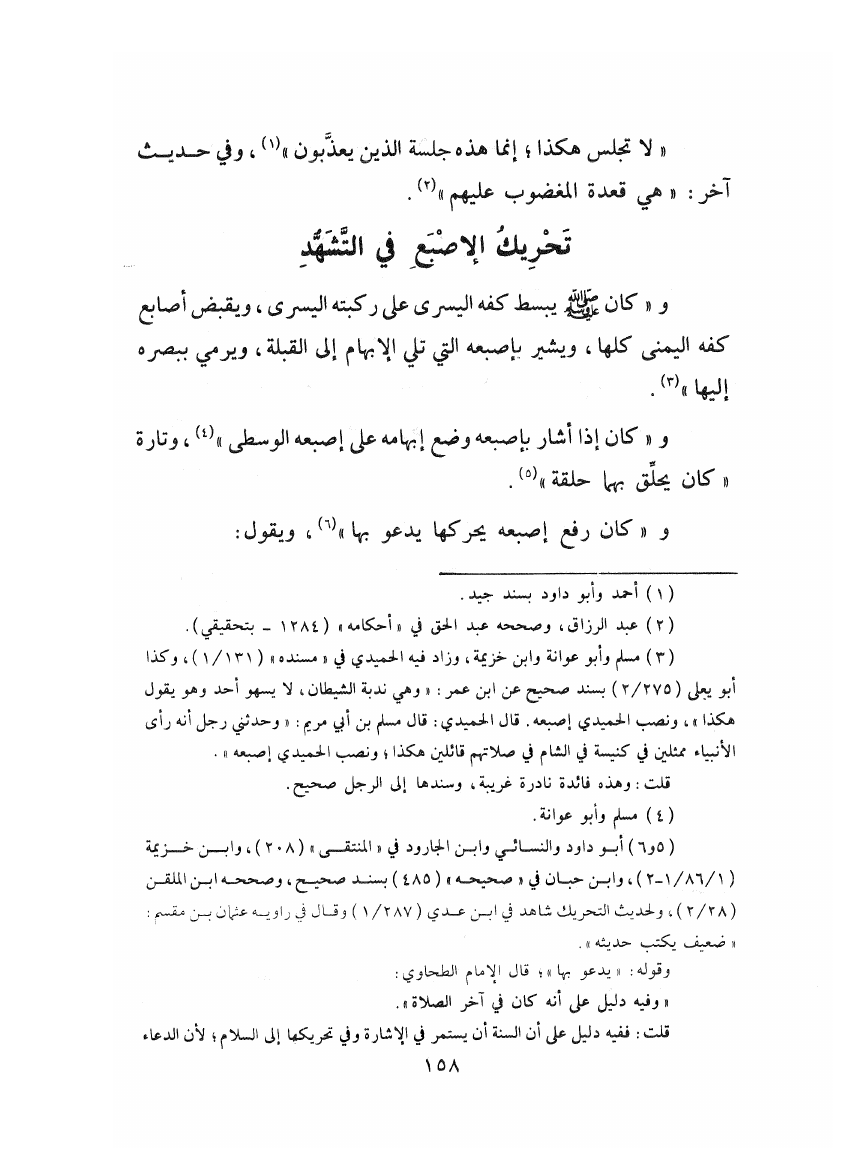 « لا تجلس هكذا ؛ إنما هذه جلسة الذين يعذَّبون »(١) ، وفي حـديـث
آخر : « هي قعدة المغضوب عليهم »(٢) .
تَحْرِيكُ الإصْبَعِ في التَّشَهُّدِ
و « كان ﷺ يبسط كفه اليسرى على ركبته اليسرى ، ويقبض أصابع
كفه اليمنى كلها ، ويشير بإصبعه التي تلي الإبهام إلى القبلة ، ويرمي ببصره
إليها »(٣) .
و « كان إذا أشار بإصبعه وضع إبهامه على إصبعه الوسطى »(٤) ، وتارة
« كان يحلِّق بهما حلقة »(٥) .
و « كان رفع إصبعه يحركها يدعو بها »(٦) ، ويقول :
(١) أحمد وأبو داود بسند جيد .
(٢) عبد الرزاق ، وصححه عبد الحق في « أحكامه » (١٢٨٤ - بتحقيقي) .
(٣) مسلم وأبو عوانة وابن خزيمة ، وزاد فيه الحميدي في « مسنده » (١/١٣١) ، وكذا
أبو يعلى (٢/٢٧٥) بسند صحيح عن ابن عمر : « وهي ندبة الشيطان ، لا يسهو أحد وهو يقول
هكذا » ، ونصب الحميدي إصبعه . قال الحميدي : قال مسلم بن أبي مريم : « وحدثني رجل أنه رأى
الأنبياء ممثلين في كنيسة في الشام في صلاتهم قائلين هكذا ؛ ونصب الحميدي إصبعه » .
قلت : وهذه فائدة نادرة غريبة ، وسندها إلى الرجل صحيح .
(٤) مسلم وأبو عوانة .
(٥و٦) أبـو داود والنسـائـي وابـن الجارود في « المنتقـى » (٢٠٨) ، وابـن خـزيمة
(١/٨٦/١-٢) ، وابـن حبـان في « صحيحـه » (٤٨٥) بسنـد صحيـح ، وصححـه ابـن الملقـن
(٢/٢٨) ، ولحديث التحريك شاهد في ابـن عـدي (١/٢٨٧) وقـال في راويـه عثمان بـن مقسم :
« ضعيف يكتب حديثه » .
وقوله : « يدعو بها » ؛ قال الإمام الطحاوي :
« وفيه دليل على أنه كان في آخر الصلاة » .
قلت : ففيه دليل على أن السنة أن يستمر في الإشارة وفي تحريكها إلى السلام ؛ لأن الدعاء
١٥٨